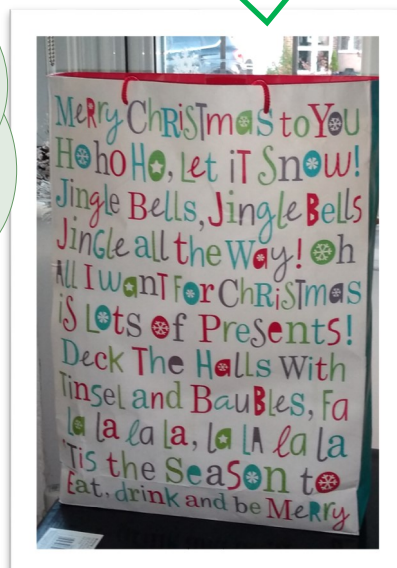 Merry ChRiSTmas to You
Ho ho Ho, Let iT Snow!
Jingle Bells, Jingle Bells
JinGle all the Way! oh
All I wanT For ChRiSTmas
iS Lots of PreSents!
Deck The Halls With
Tinsel and BauBles, Fa
La la la La, la LA la la
'Tis the SeaSon to
Eat, drink and be MeRRy